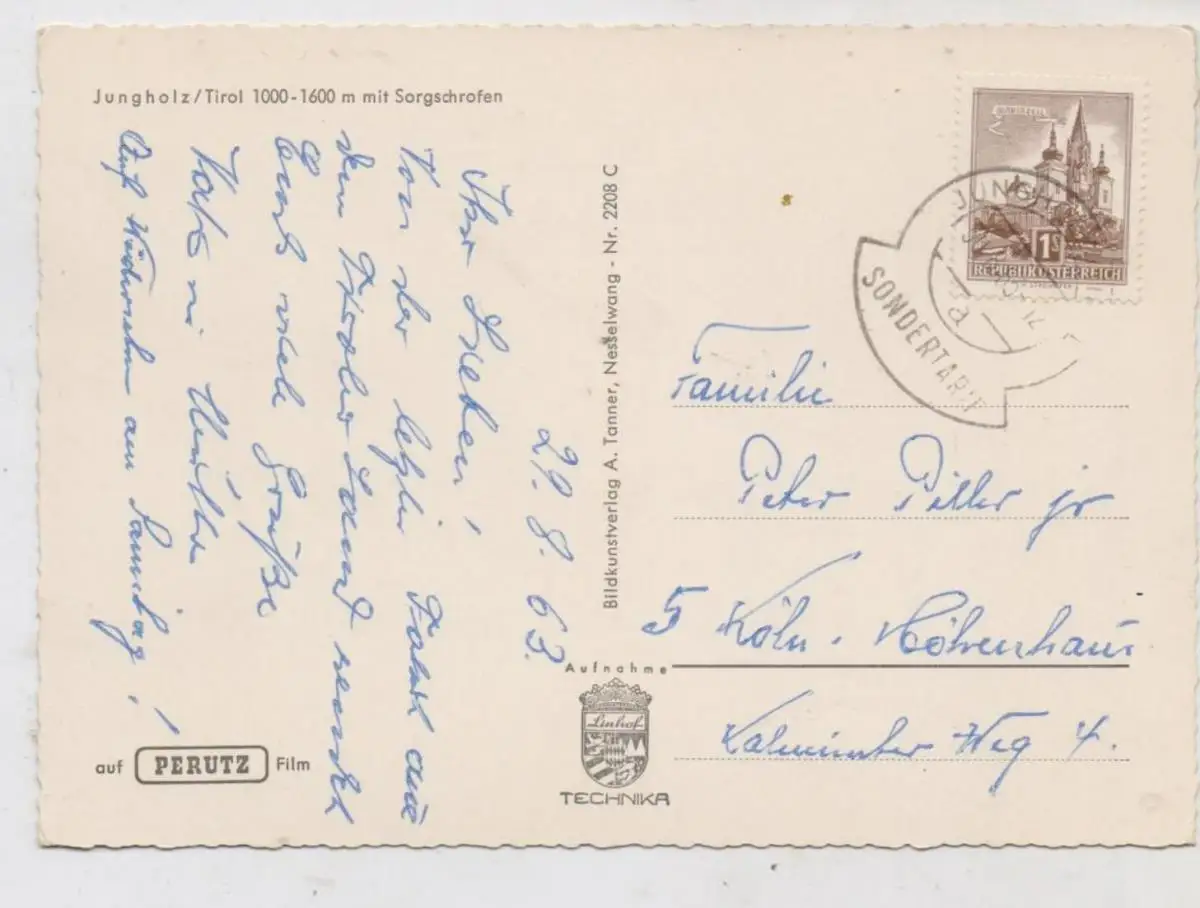 Jungholz/Tirol 1000-1600 m mit Sorgschrofen
29. 8. 63.
Ihr Lieben!
Von der letzten Fahrt aus
dem Tiroler Land sendet
Euch viele Grüße
Vater u. Mutter
Auf Wiedersehn am Samstag!
Bildkunstverlag A. Tanner, Nesselwang - Nr. 2208 C
MARIAZELL
1S
REPUBLIK ÖSTERREICH
JUNGH
a
SONDERTARIF
Familie
Peter Piller jr
5 Köln. Höhenhaus
Kalmünter Weg 4.
Aufnahme
Linhof
TECHNIKA
auf PERUTZ Film